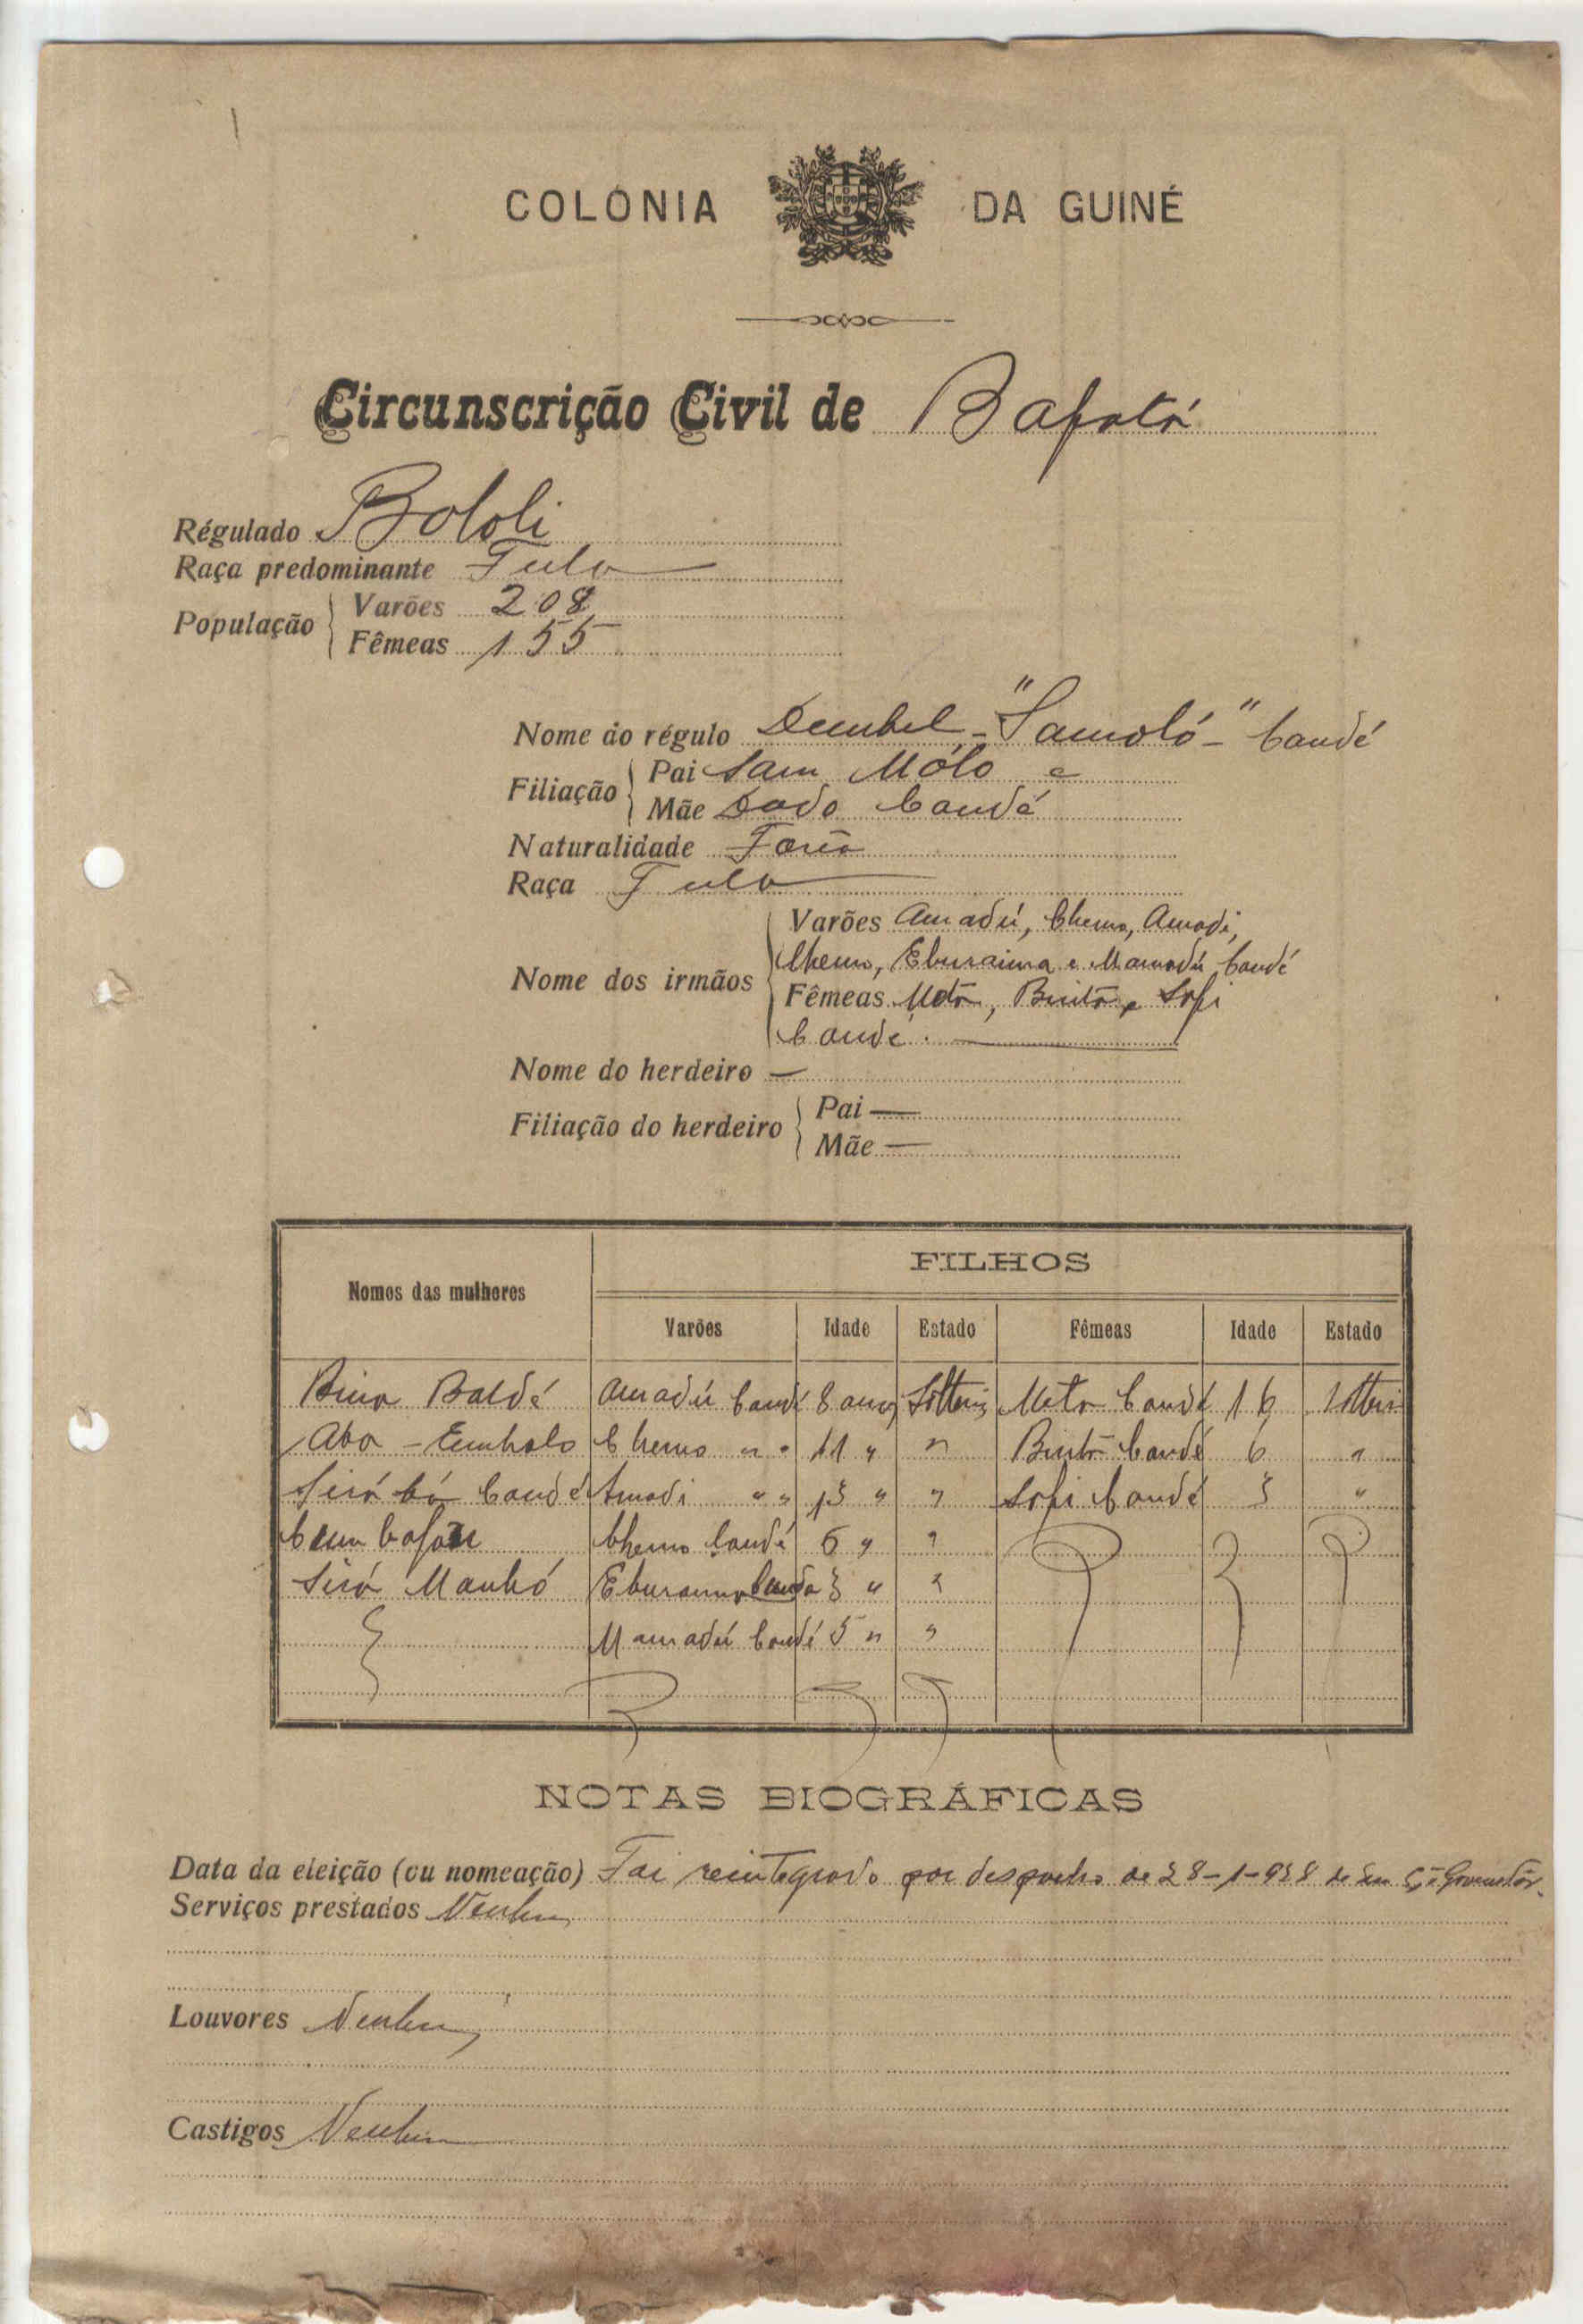 COLÓNIA DA GUINÉ
Circunscrição Civil de Bafatá
Régulado Bololi
Raça predominante Fula
População Varões 208
Fêmeas 155
Nome do régulo Dembel - "Samoló" - Candé
Filiação Pai Sam Mólo e
Mãe Dado Candé
Naturalidade
Raça Fula
Varões Amadú, Chemo, Amadi,
Nome dos irmãos Chemo, Eburaima e Mamadú Candé
Fêmeas Metá, Bintá e Sofi
Candé.
Nome do herdeiro —
Filiação do herdeiro Pai —
Mãe —
Nomes das mulheres FILHOS
Varões Idade Estado Fêmeas Idade Estado
Baldé Amadú Candé 8 anos Solteiro Meta Candé 16 Solteira
Aba - Embalo Chemo " " 11 " " Bintá Candé 6 "
Candé Amadi " " 13 " " Sofi Candé 3 "
Chemo Candé 6 " "
Sirá Manhó Eburaima Candé 3 " "
Mamadú Candé 5 " "
NOTAS BIOGRÁFICAS
Data da eleição (ou nomeação) Foi reintegrado por despacho de 28-1-938 de Sua Ex.ª Governador.
Serviços prestados Nenhum
Louvores Nenhum
Castigos Nenhum